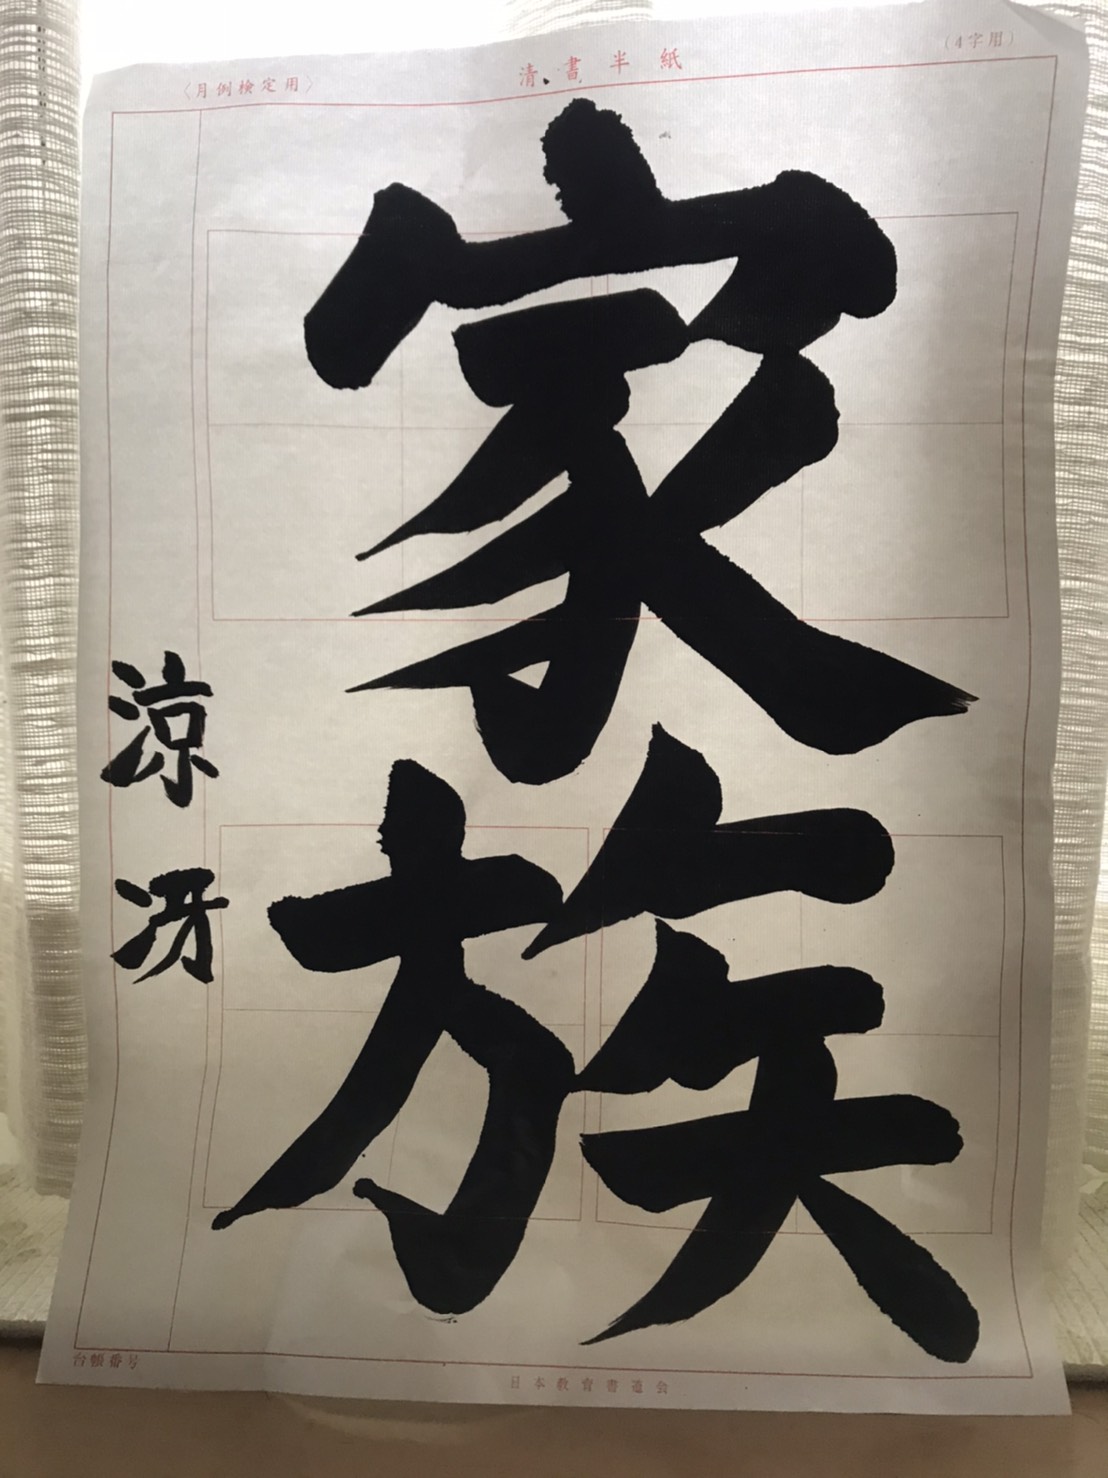 〈月例検定用〉
清書半紙
（4字用）
家族
涼冴
台帳番号
日本教育書道会